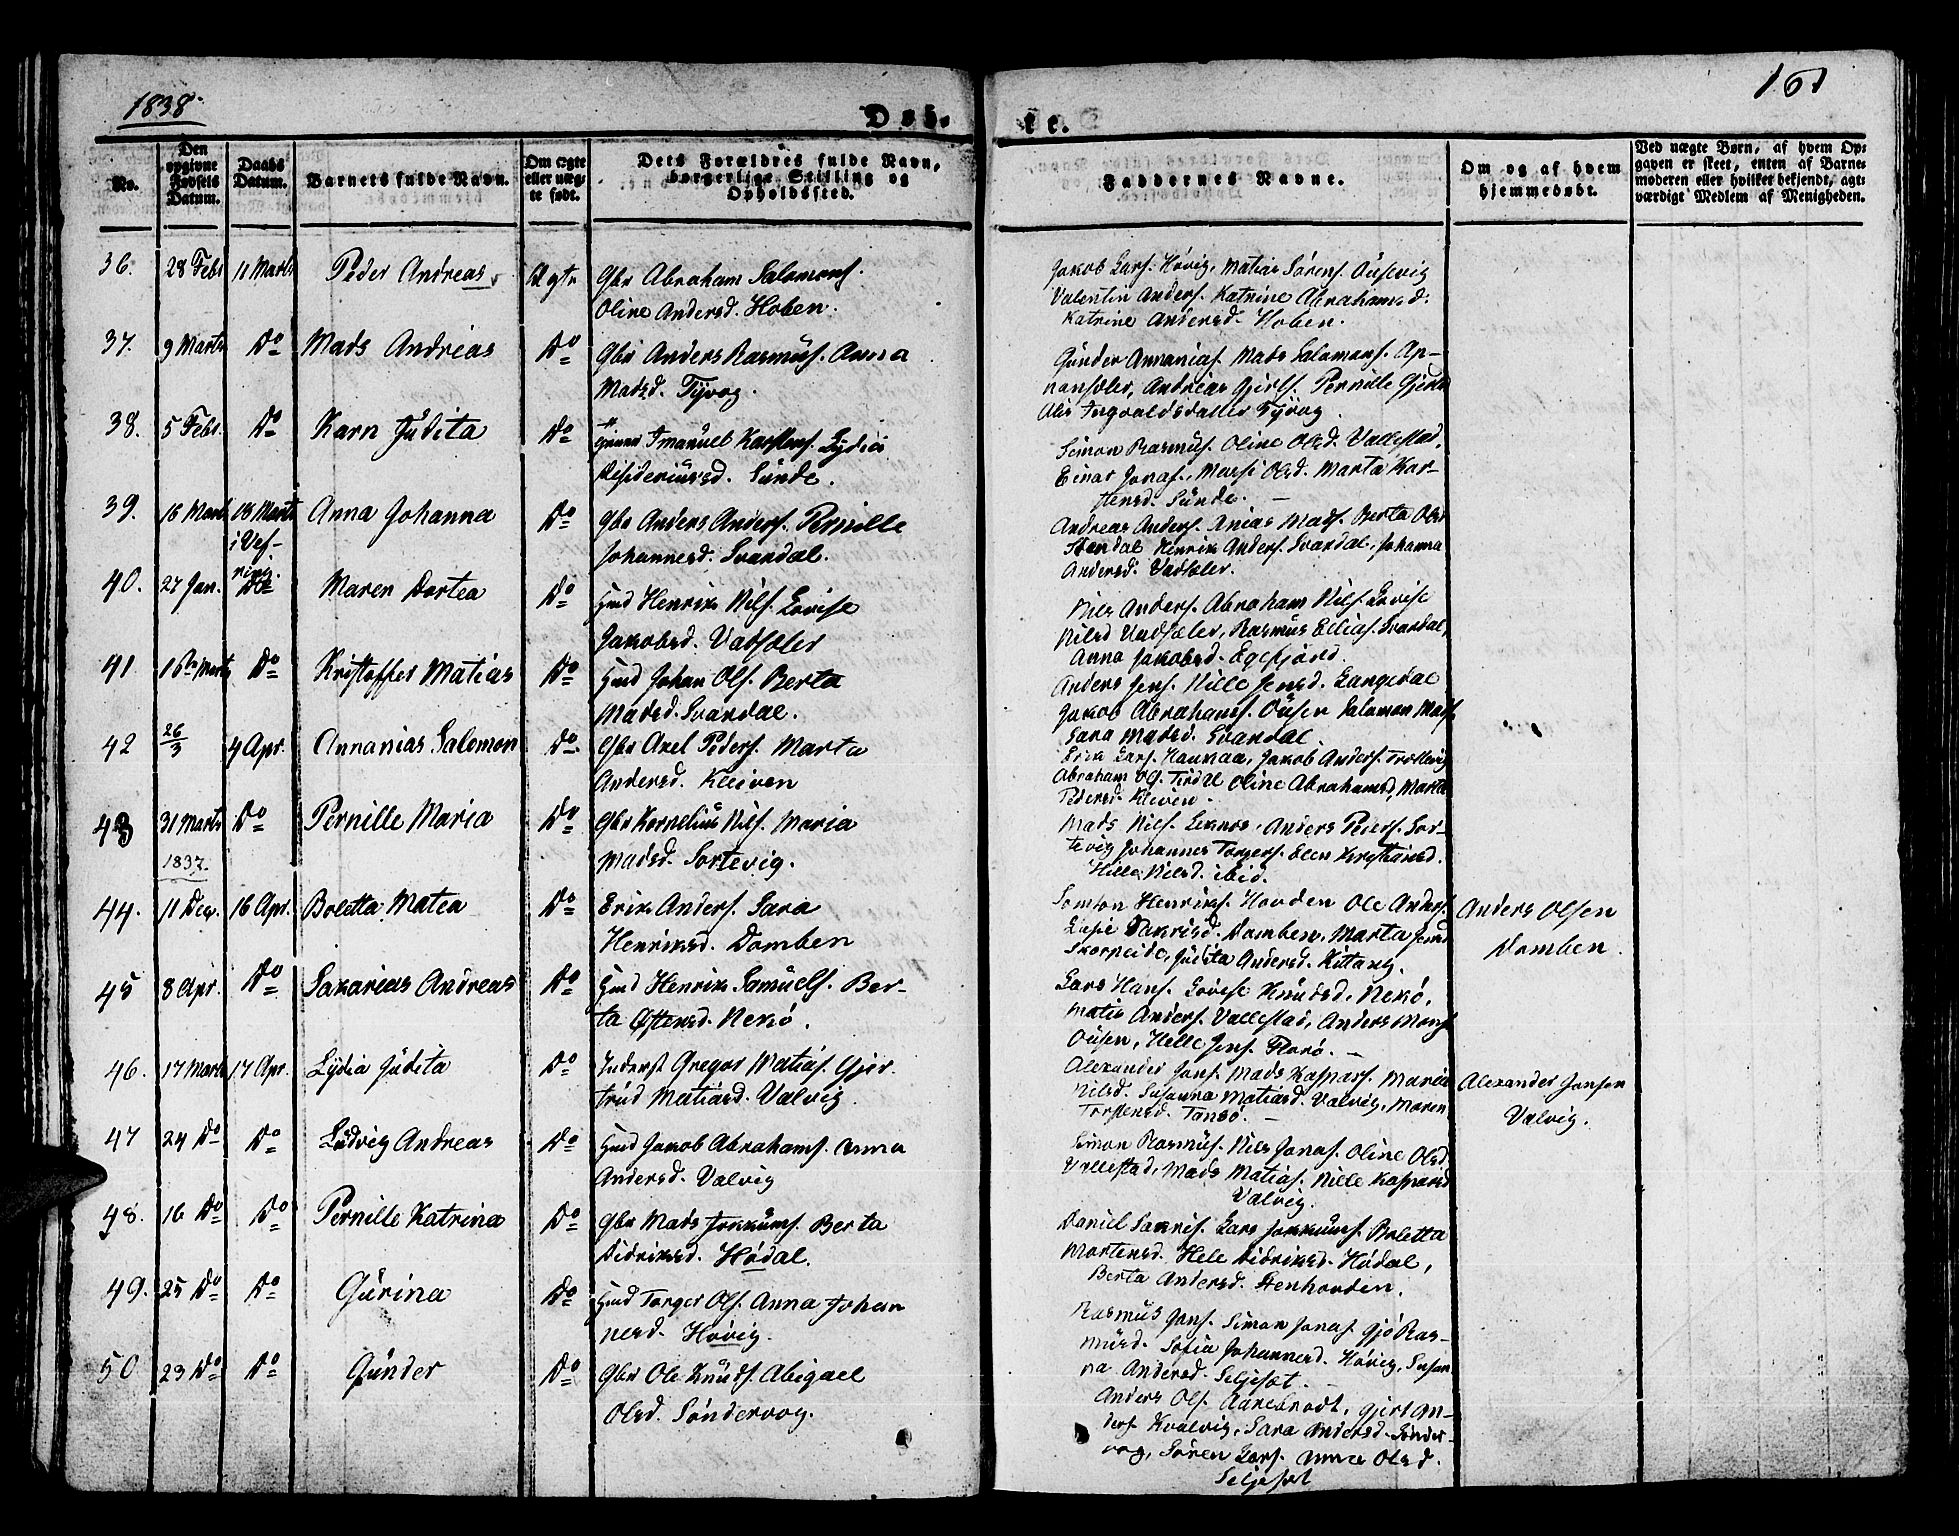 1838.
Døb-
te.
161
No.
Den opgivne Fødsels Datum.
Daabs Datum.
Barnets fulde Navn.
Om ægte eller uægte født.
Dets Forældres fulde Navn, borgerlige Stilling og Opholdssted.
Faddernes Navne.
Om og af hvem hjemmedøbt.
Ved uægte Børn, af hvem Opgaven er skeet, enten af Barnemoderen eller hvilket bekjendt, agtværdigt Medlem af Menigheden.
36. 28 Febr 11 Marts Peder Andreas Ægte Gbr Abraham Salomons.
Oline Andersd. Hoben.
Jakob Lars. Høvig, Matias Sørens. Ousevig
Valentin Anders. Katrine Abrahamsd.
Katrine Andersd. Hoben.
37. 9 Marts Do Mads Andreas Do Gbr Anders Rasmus. Anna
Madsd. Tyvog.
Gunder Annanias. Mads Salomons. Ap-
nansæler, Andreas Gjerts. Pernille Gjerts
Alis Ingvaldsdatter Tyvog.
38. 5 Febr. Do Karn Judita Do Imanuel Karstens. Lydia
Desideriusd. Sunde.
Simon Rasmus. Oline Olsd. Vallestad,
Einar Jonas. Massi Olsd. Marta Kar-
stensd. Sunde. —
39. 16 Marts 18 Marts Anna Johanna Do Gbr Anders Anders. Pernille
i Vef-
ring.
Johannesd. Svardal.
Andreas Anders. Anias Mads. Berta Olsd
Stendal Henrik Anders. Svardal, Johanna
Andersd. Vadsæler.
40. 27 Jan. Do Maren Dortea Do Hmd Henrik Nils. Lovise
Jakobsd. Vadsæler
Nils Anders. Abraham Nils. Lovise
Nilsd Vadsæler, Rasmus Elias. Svardal,
Anna Jakobsd. Egefjord.
41 Marts Do Kristoffer Matias Do Hmd Johan Ols. Berta
Madsd. Svardal.
Anders Jens. Nille Jensd. Langedal
Jakob Abrahams. Ousen Salamon Mads
Sara Madsd. Svardal.
42 26/3 4 Apr. Annanias Salomon Do Gbr Axel Peders. Marta
Andersd. Kleiven
Erik Lars. Haukaa, Jakob Anders. Trollevig
Abraham Ols. Tirdal Oline Abrahamsd, Marta
Pedersd. Kleiven.
43 31 Marts Do Pernille Maria Do Gbr Kornelius Nils. Maria
Madsd. Sortevig.
Mads Nils. Leknes, Anders Peders. Sor-
tevig Johannes Torgers. Elen Kristiansd.
Hille Nilsd. ibid.
1837.
44. 11 Dec. 16 Apr. Boletta Matea Do Erik Anders. Sara
Henriksd. Domben
Samson Henriks. Hovden Ole Anders.
Lusie Sakrisd. Domben, Marta Jensd
Skorpeide, Judita Andersd. Kittang.
Anders Olsen
Domben.
45 8 Apr. Do Sakarias Andreas Do Hmd Henrik Samuels. Ber-
ta Østensd. Nekø.
Lars Hans. Lovise Knudsd. Nekø,
Matis Anders. Vallestad, Anders Mons.
Ousen, Helle Jens. Florø. —
46. 17 Marts 17 Apr. Lydia Judita Do Inderst Gregor Matias. Gjer-
trud Matiasd. Valvig.
Alexander Jans. Mads Kaspars. Maria
Nilsd. Susanna Matiasd. Valvig, Maren
Torstensd. Tansø. —
Alexander Jansen
Valvig.
47 24 Do Do Ludvig Andreas Do Hmd Jakob Abrahams. Anna
Andersd. Valvig
Simon Rasmus. Nils Jonas. Oline Olsd.
Vallestad, Mads Matias. Nille Kasparsd
Valvig.
48. 16 Do Do Pernille Katrina Do Gbr Mads Jokkums. Berta
Didriksd. Hødal.
Daniel Sakris. Lars Jokkums. Boletta
Mortensd. Hele Didriksd. Hødal,
Berta Andersd. Stenhovden.
49. 25 Do Do Gurina Do Hmd Torger Ols. Anna Johan
nesd. Høvig.
Rasmus Jans. Simon Jonas. Gjø Ras-
musd. Sofia Johannesd. Høvig, Susan
na Andersd. Seljeset. —
50 23 Do Do Gunder Do Gbr Ole Knuds. Abigael
Olsd. Søndervog.
Anders Ols. Aarebrodt, Gjert An-
ders Kvalvig, Sara Andersd. Sønder-
vog, Søren Lars. Anna Olsd.
Seljeset